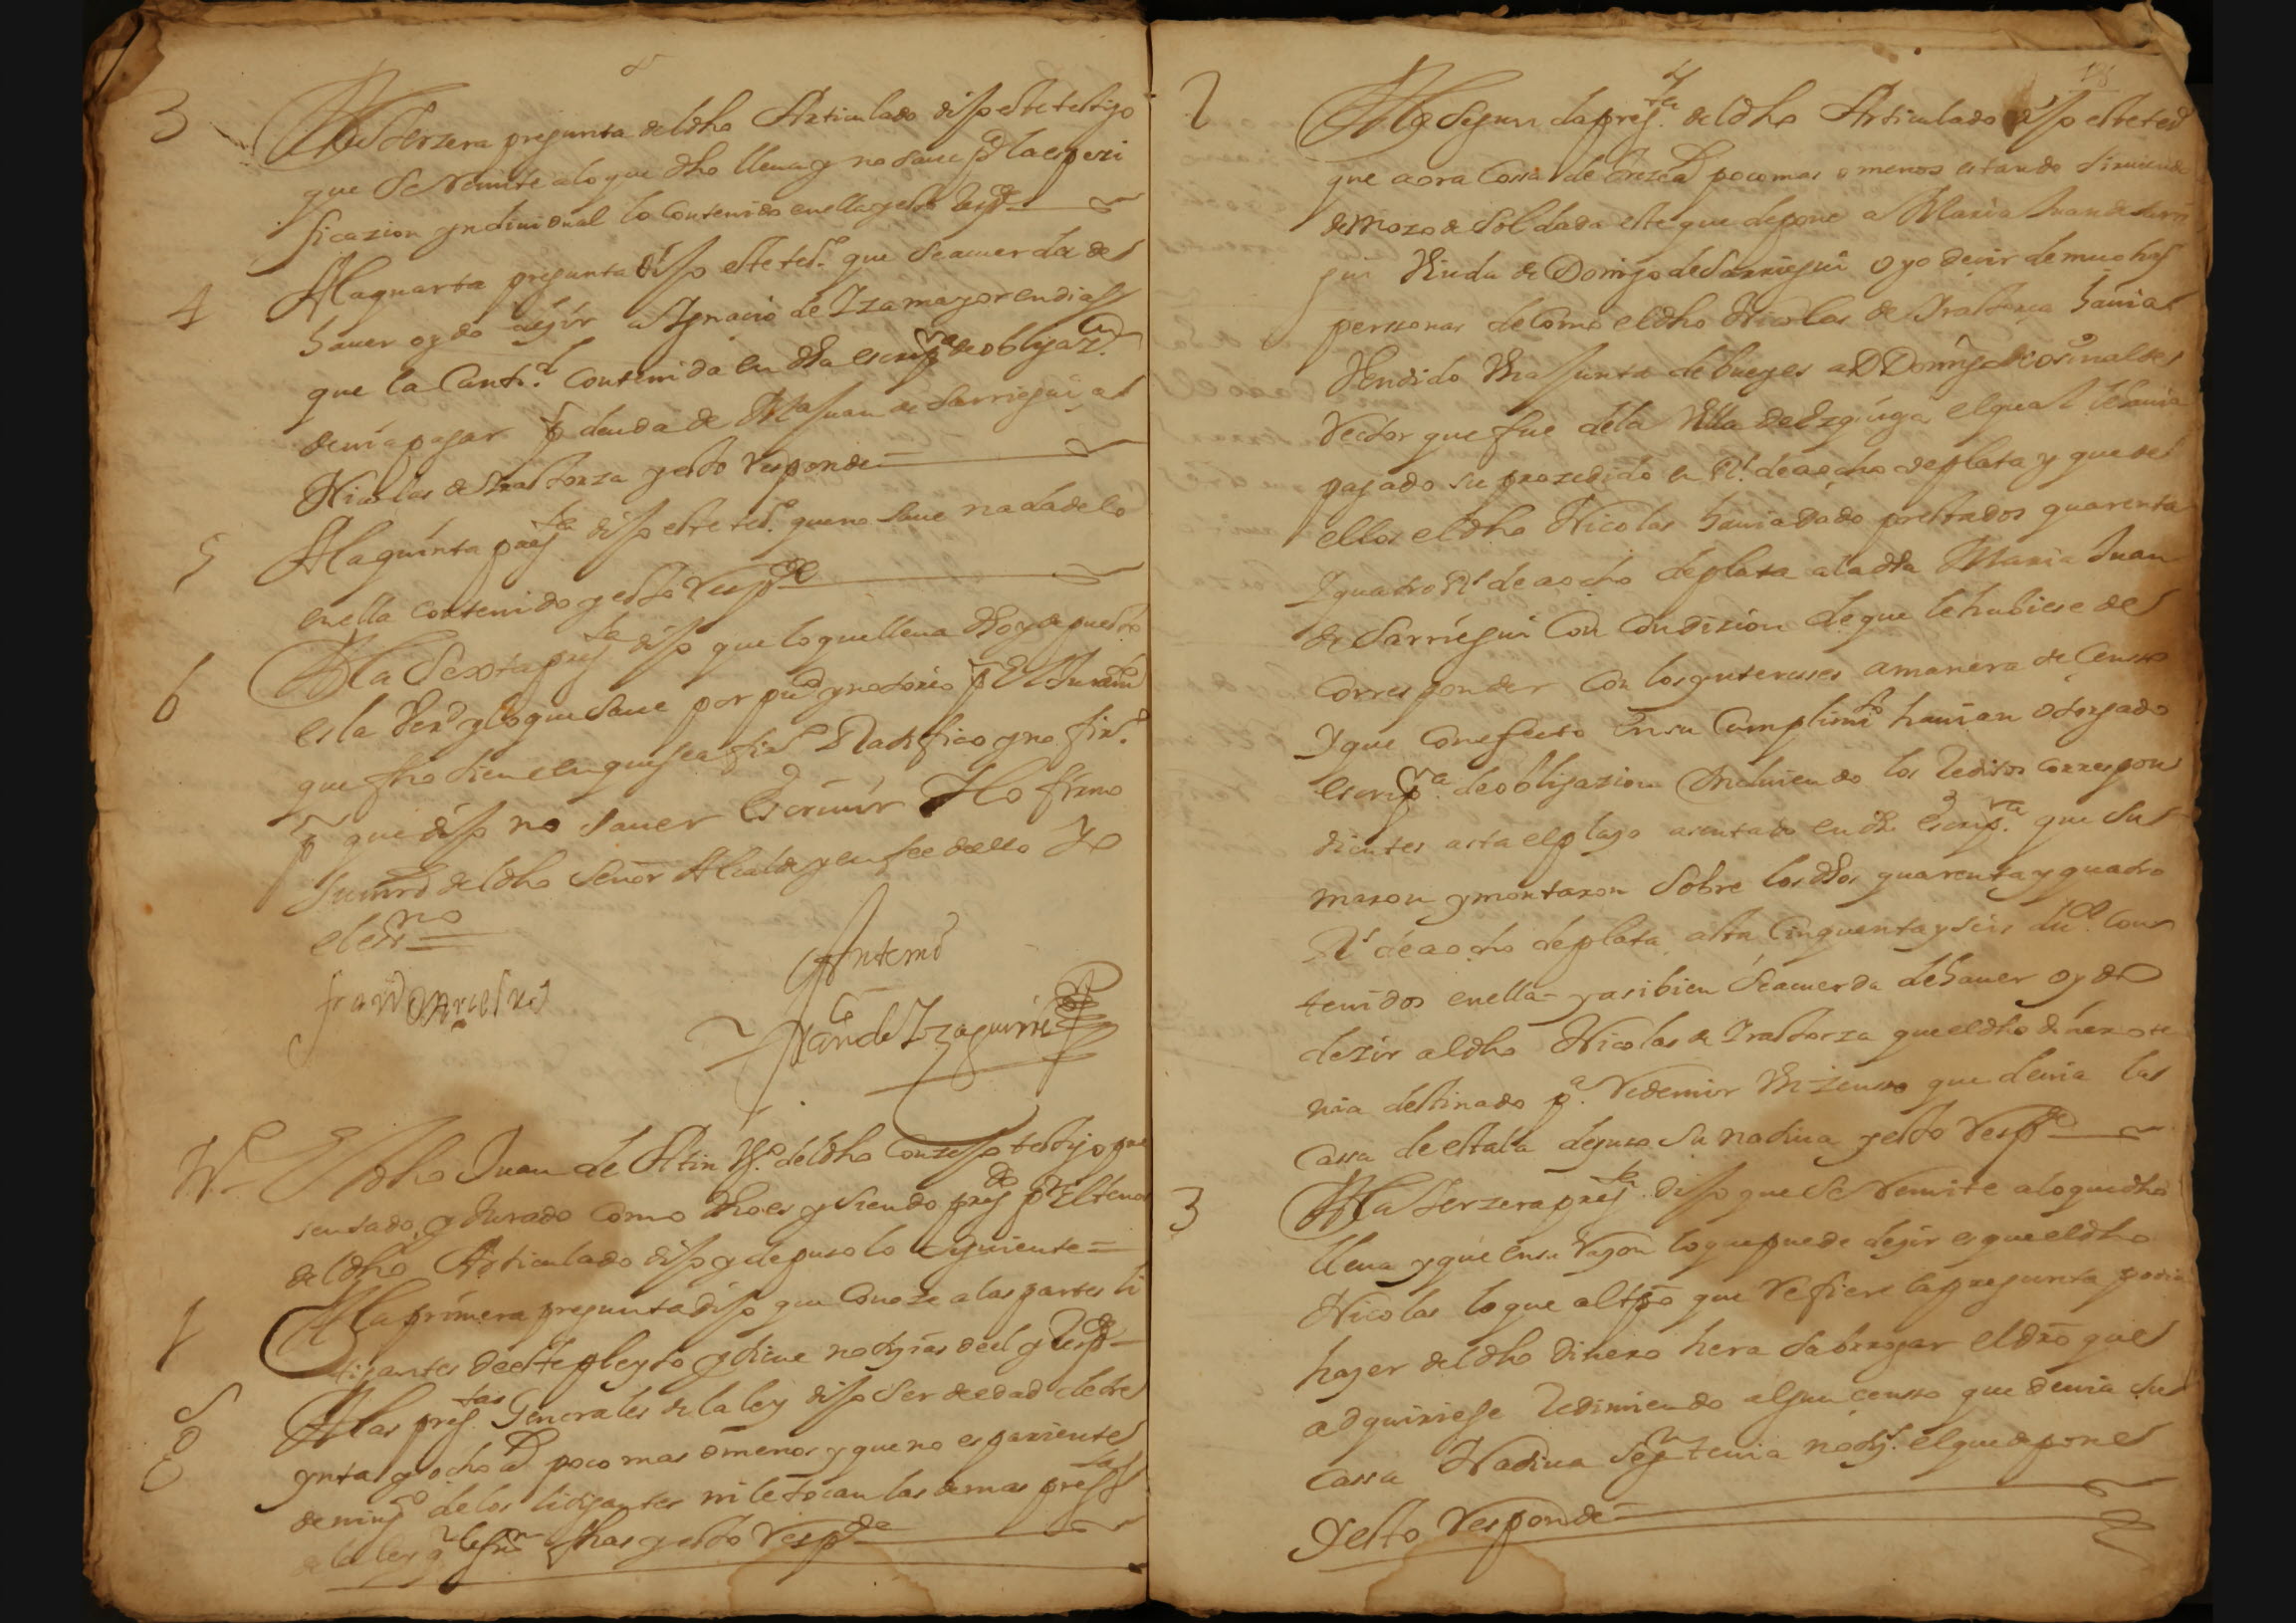 3
A la terzera pregunta del dho Articulado dijo este testigo
que se remite alo que dho lleva y no save pr la espezi
ficazion yndividual lo contenido en ella y esto respde
4
A la quarta pregunta dijo este tesº que se acuerda de
haver oydo dezir a Ygnacio de Yza mayor en dias
que la Cantd contenida en dha escripra de obligazon
devia pagar pr deuda de Mª Juan de Sarriegui a
Nicolas de Yrastorza y esto responde =
5
A la quinta pregta dijo este tesº que no save nada de lo
en ella contenido y esto respde
6
A la Sexta pregta dijo que lo que lleva dho y depuesto
es la verd y lo que save por puco y notorio pr el Juramto
que fho tiene en que se afirº Ratifico y no firº
pr que dijo no saver escrivir Ho firmo
su mrd del dho Señor Alcalde y en fee de ello Yo
el essno
Ante mi
Frande Yzaguirre
El dho Juan de Altin Vº del dho Conzejo testigo pre
sentado, y Jurado como dho es y siendo pregdo pr el tenor
del dho Articulado dijo y depuso lo siguiente =
1
A la primera pregunta dijo que conoze a las partes li
tigantes de este pleyto y tiene notizias de el y respde
A las pregtas Generales de la ley dijo ser de edad de tre
ynta y ocho as poco mas o menos y que no es pariente
de ningº de los litigantes ni le tocan las demas pregtas
de la ley q le fuon fhas y esto respde
2
A la Segunda pregta del dho Articulado dijo este tesº
que aora cossa de treze as poco mas o menos estando sirviendo
de mozo de soldada este que depone a Maria Juan de Sarrie
gui Viuda de Domingo de Sarriegui oyo dezir de muchas
personas de como el dho Nicolas de Yrastorza havia
vendido una Junta de bueyes a Dn Domingo de
Rector que fue de la Villa de Ezquioga el qual le havia
pagado su prozedido en Rs de a ocho de plata y que de
ellos el dho Nicolas havia dado prestados quarenta
y quatro Rs de a ocho de plata a la dha Maria Juan
de Sarriegui con condizion de que le hubiese de
corresponder con los yntereses a manera de Censso
Y que con efecto en su cumplimto havian otorgado
escripra de obligazion yncluiendo los reditos correspon
dientes asta el plazo asentado en dha escripra que su
maron y montaron sobre los dhos quarenta y quatro
Rs de a ocho de plata, asta cinquenta y seis ducos con
tenidos en ella = y asi bien se acuerda de haver oydo
dezir al dho Nicolas de Yrastorza que el dho dinero te
nia destinado pª redemir un zensso que devia la
cassa de estala de su nativa y esto respde
3
A la terzera pregta dijo que se remite alo que dho
lleva y que en su razon lo que puede dezir es que el dho
Nicolas lo que al tpo que refiere la pregunta podia
hazer del dho dinero hera subrogar el dro que
adquiriese redimiendo algun censso que devia su
cassa Nativa segn tenia notzª el que depone
Y esto responde =